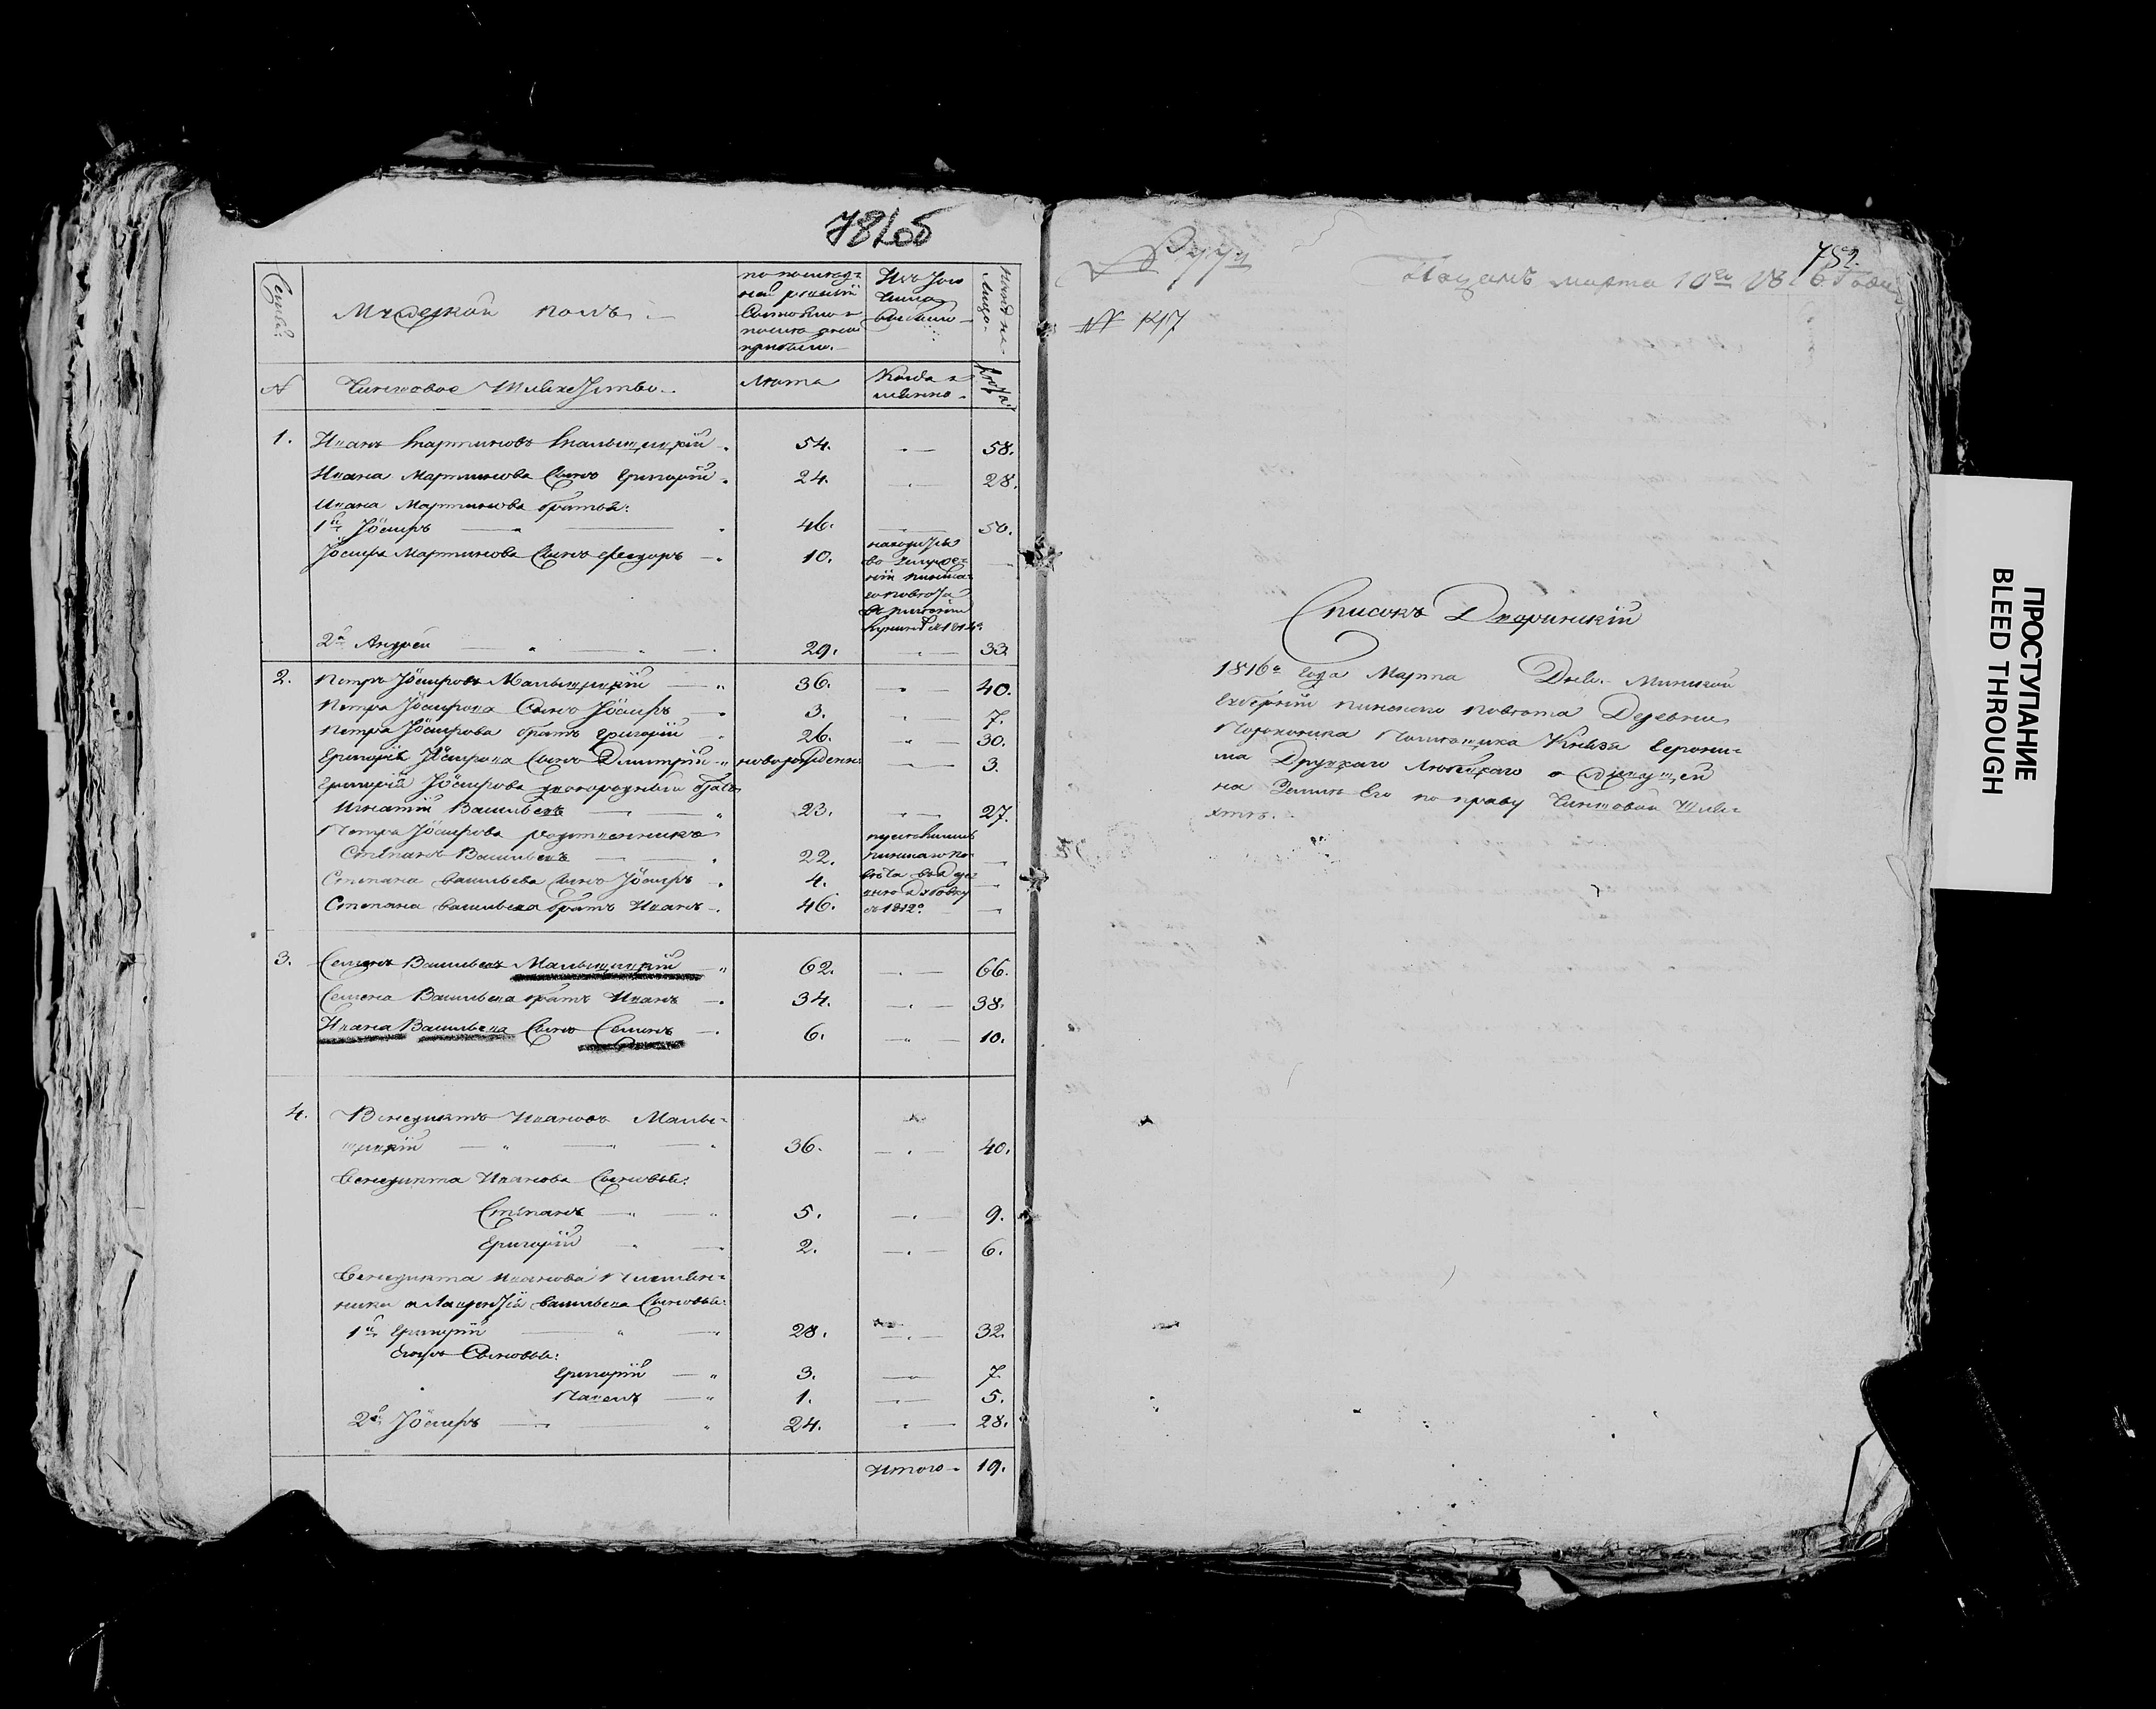 781об
Семьи.
Мужеской полъ.
по послед-
ней ревизіи
Состояло и
после оной
прибыло.
Изъ того
числа
выбыло
Нынѣ на
лицо.
№
Чиншовое Шляхетство
Лѣта
Когда и
имянно
Лѣта
1. Иванъ Мартиновъ Малыщицкій 54. 58.
Ивана Мартинова Сынъ Григорій 24. 28.
Ивана Мартинова братья:
1й Іосифъ 46. 50.
Іосифа Мартинова Сынъ Федоръ 10. находится
во
ніи Пинска-
го повѣта
2й Андрей 29. 33.
2. Петръ Іосифовъ Малыщицкій 36. 40.
Петра Іосифова Сынъ Іосифъ 3. 7.
Петра Іосифова братъ Григорій 26. 30.
Григорія Іосифова Сынъ Дмитрій новорожденн. 3.
Григорія Іосифова двоюродный братъ
Игнатій Васильевъ 23. 27.
Петра Іосифова родственникъ
Степанъ Васильевъ 22.
Степана Васильева Сынъ Іосифъ 4.
Степана Васильева братъ Иванъ 46. 1812о
3. Семенъ Васильевъ Малыщицкій 62. 66.
Семена Васильева братъ Иванъ 34. 38.
Ивана Васильева Сынъ Семенъ 6. 10.
4. Венедиктъ Ивановъ Малы-
щицкій 36. 40.
Венедикта Иванова Сыновья:
Степанъ 5. 9.
Григорій 2. 6.
Венедикта Иванова Племян-
ники а Лаврентія Васильева Сыновья:
1й Григорій 28. 32.
Сыновья:
Григорій 3. 7.
Павелъ 1. 5.
2й Іосифъ 24. 28.
Итого 19.
782.
Поданъ марта 10го 1816 Года
№ 147
Списокъ Дворянскій
1816о Года Марта Дня. Минской
Губерніи Пинского Повѣта Деревни
Порохонска Помѣщика Князя Ерони-
ма Друцкаго Любецкаго о Живущей
на Земли Его по праву Чиншовой Шля-
хтѣ.
ПРОСТУПАНИЕ
BLEED THROUGH